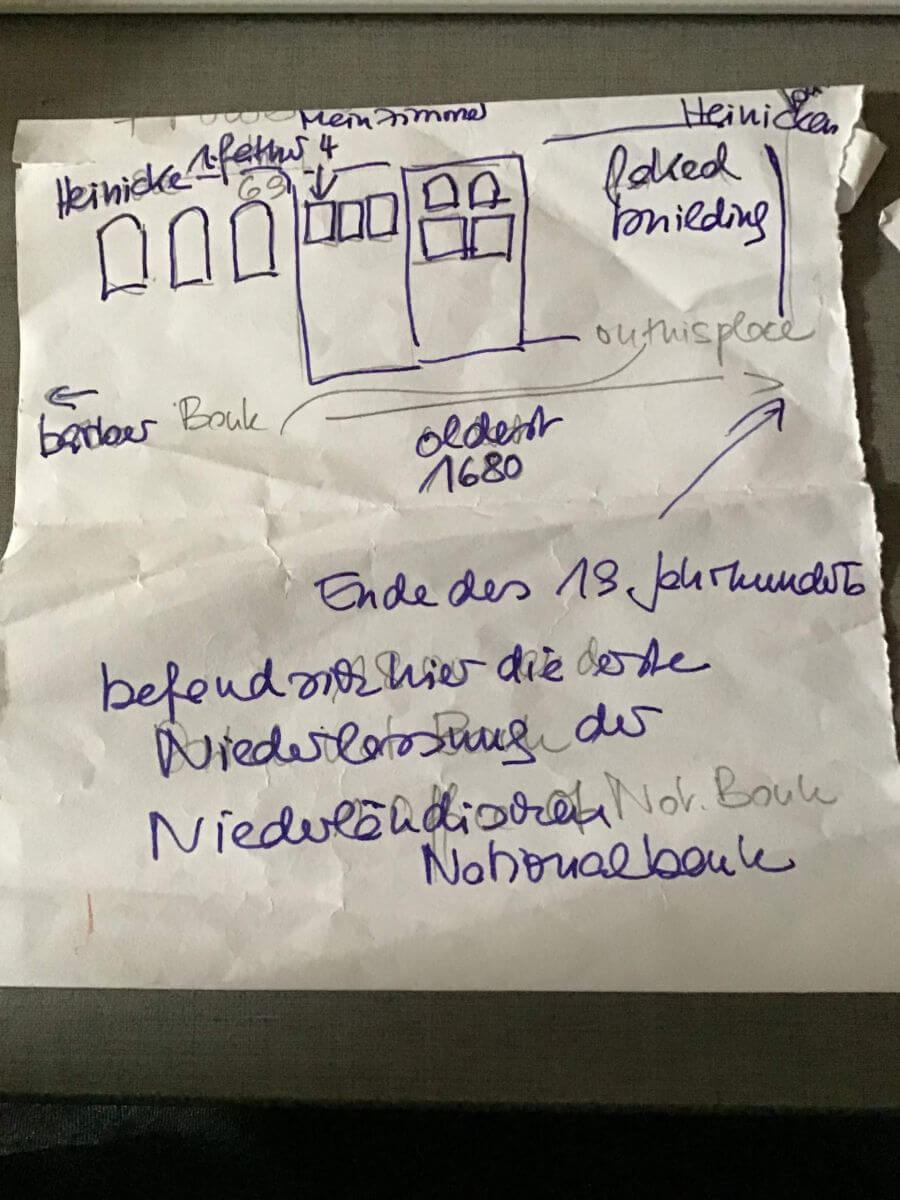 Mein Zimmer
Heinicken
Heinicke
4
69
faked
building
on this place
Bank
oldest
1680
Ende des 19. Jahrhunderts
befand sich hier die erste
Niederlassung der
Niederländischen Nat. Bank
Nationalbank